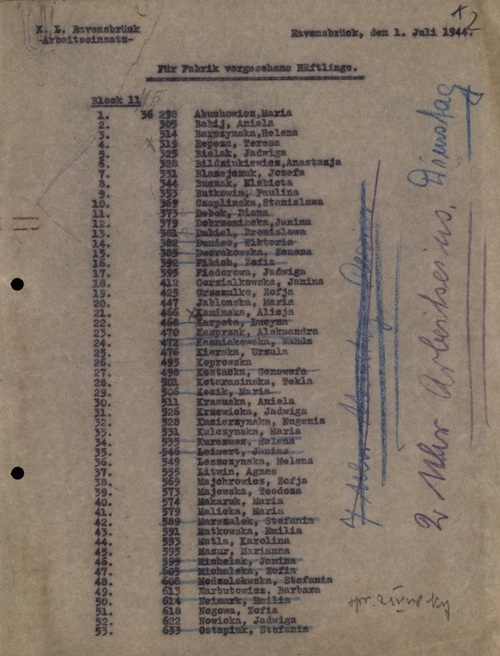 K. L. Ravensbrück
-Arbeitseinsatz-
Ravensbrück, den 1. Juli 1944.
Für Fabrik vorgesehene Häftlinge.
Block 11
1. 36 298 Abuchowicz, Maria
2. 305 Babij, Aniela
3. 314 Helena
4. 319 Teresa
5. 325 Bielak, Jadwiga
6. 328 Bildziukiewicz, Anastazja
7. 331 Blazejczuk, Jozefa
8. 344 Buczak, Elzbieta
9. 353 Butkowin, Paulina
10. 369 Czaplinska, Stanislawa
11. 373 Debek, Diana
12. 379 Janina
13. 381 Dubiel, Bronislawa
14. 382 Wiktoria
15. 385 Dworakowska, Zenona
16. 392 Fibich, Zofia
17. 395 Fiedorowa, Jadwiga
18. 412 Gorzialkowska, Janina
19. 425 Grzezulko, Zofja
20. 447 Jablonska, Maria
21. 466 Kaminska, Alicja
22. 468 Karpeta, Lucyna
23. 470 Kasprzak, Aleksandra
24. 472 Kazniakowska, Wanda
25. 476 Kierska, Urzula
26. 495 Koprowska
27. 498 Kostecka, Genowefa
28. 501 Kotarasinska, Tekla
29. 506 Kozik, Maria
30. 511 Krasuska, Aniela
31. 526 Krzewicka, Jadwiga
32. 528 Eugenia
33. 531 Kulczynska, Maria
34. 535 Helena
35. 546 Leinert, Janina
36. 549 Leszczynska, Helena
37. 555 Litwin, Agnes
38. 569 Majchrowicz, Zofja
39. 573 Majewska, Teodoza
40. 574 Makaruk, Maria
41. 579 Malicka, Maria
42. 589 Marszalek, Stefania
43. 591 Matkowska, Emilia
44. 593 Matla, Karolina
45. 595 Mazur, Marianna
46. 599 Michalak, Janina
47. 605 Michalska, Zofia
48. 608 Modzelewska, Stefania
49. 613 Narbutowicz, Barbara
50. 614 Neimark, Emilia
51. 618 Nogowa, Zofia
52. 622 Nowicka, Jadwiga
53. 633 Ostapiuk, Stefania
Dienstag
2 Uhr Arbeitseins.